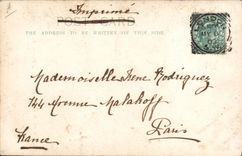 Imprimé
POST CARD
THE ADDRESS TO BE WRITTEN ON THIS SIDE.
LONDON
Mademoiselle Irene Rodriguez
144 Avenue Malakoff
Paris
France